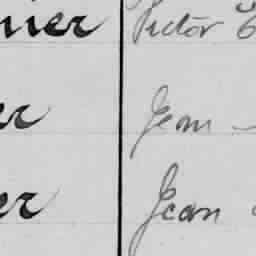 nier Victor
er Jean
er Jean